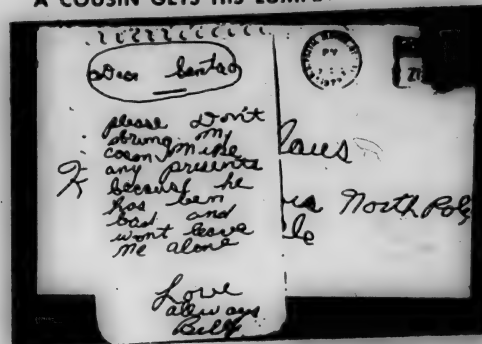 A COUSIN GETS HIS LUMPS
Dear Santa
please Don't
bring my
coson mike
any presents
because he
has ben
bad and
wont leave
me alone
Love
allways
Billy
laus
North Pole
PM